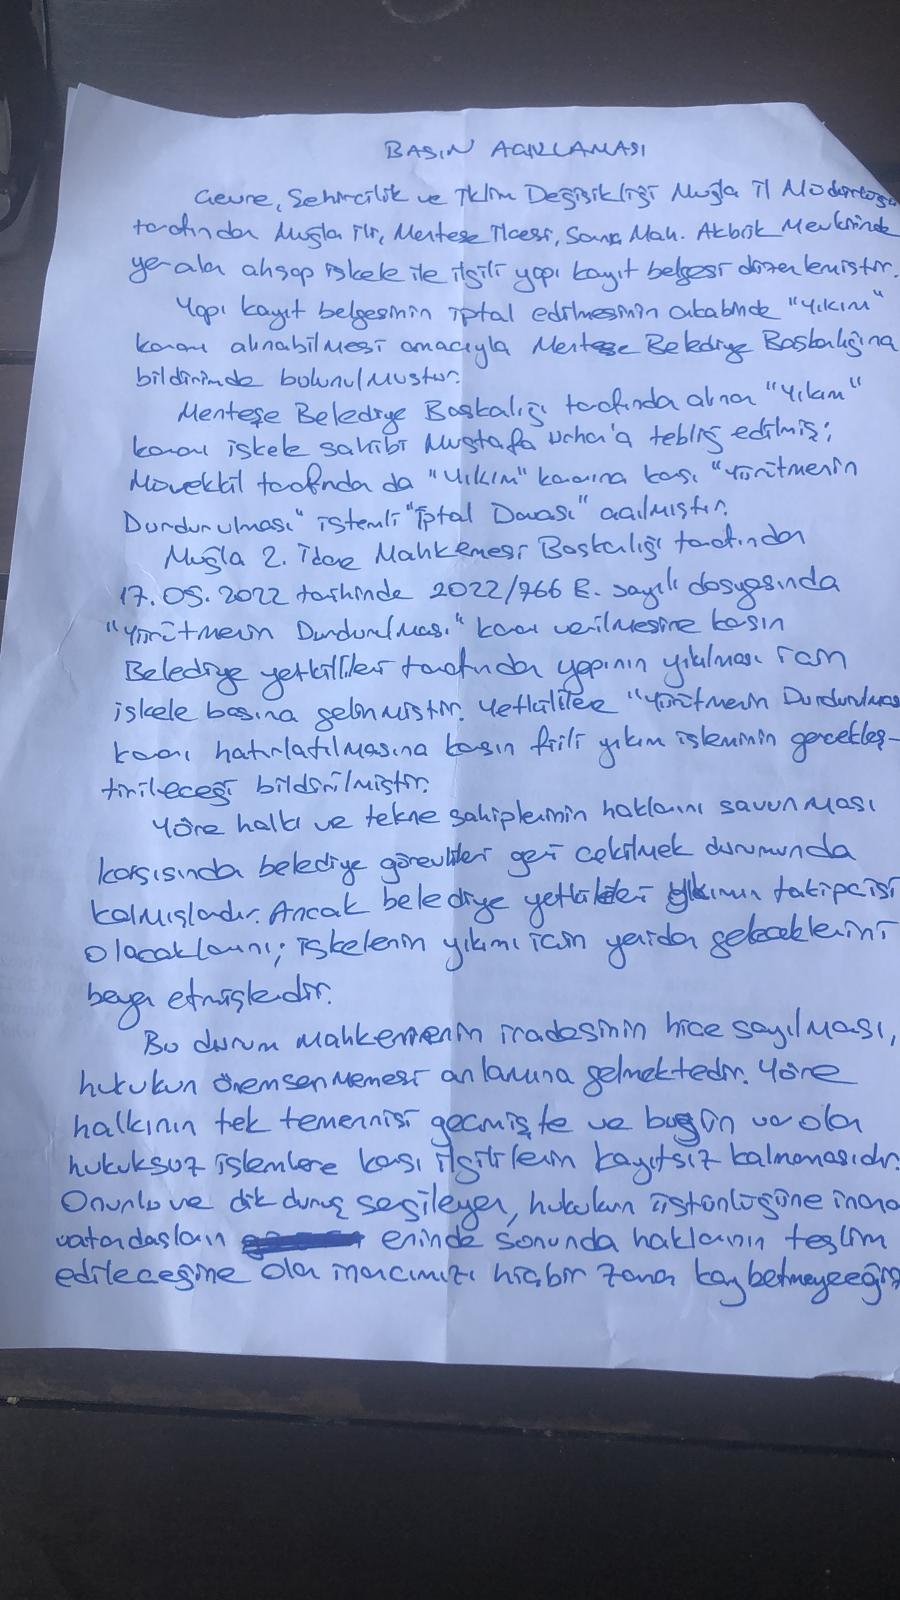 BASIN AÇIKLAMASI
Çevre, Şehircilik ve İklim Değişikliği Muğla İl Müdürlüğü
tarafından Muğla İli, Menteşe İlçesi, Mah. Akbük Mevkiinde
yer alan ahşap iskele ile ilgili yapı kayıt belgesi düzenlemiştir.
Yapı kayıt belgesinin iptal edilmesinin akabinde "Yıkım"
kararı alınabilmesi amacıyla Menteşe Belediye Başkanlığına
bildirimde bulunulmuştur.
Menteşe Belediye Başkanlığı tarafından alınan "Yıkım"
kararı iskele sahibi Mustafa tebliğ edilmiş;
Müvekkil tarafından da "Yıkım" kararına karşı "Yürütmenin
Durdurulması" istemli "İptal Davası" açılmıştır.
Muğla 2. İdare Mahkemesi Başkanlığı tarafından
17.05.2022 tarihinde 2022/766 E. sayılı dosyasında
"Yürütmenin Durdurulması" kararı verilmesine karşın
Belediye yetkilileri tarafından yapının yıkılması için
iskele başına gelinmiştir. Yetkililere "Yürütmenin Durdurulması
kararı hatırlatılmasına karşın fiili yıkım işleminin gerçekleş-
tirileceği bildirilmiştir.
Yöre halkı ve tekne sahiplerinin haklarını savunması
karşısında belediye görevlileri geri çekilmek durumunda
kalmışlardır. Ancak belediye yetkilileri yıkımın takipçisi
olacaklarını; iskelenin yıkımı için yeniden geleceklerini
beyan etmişlerdir.
Bu durum Mahkemenin iradesinin hiçe sayılması,
hukukun önemsenmemesi anlamına gelmektedir. Yöre
halkının tek temennisi geçmişte ve bugün var olan
hukuksuz işlemlere karşı ilgililerin kayıtsız kalmamasıdır.
Onurlu ve dik duruş sergileyen, hukukun üstünlüğüne inanan
vatandaşların eninde sonunda haklarının teslim
edileceğine olan inancımızı hiçbir zaman kaybetmeyeceğiz